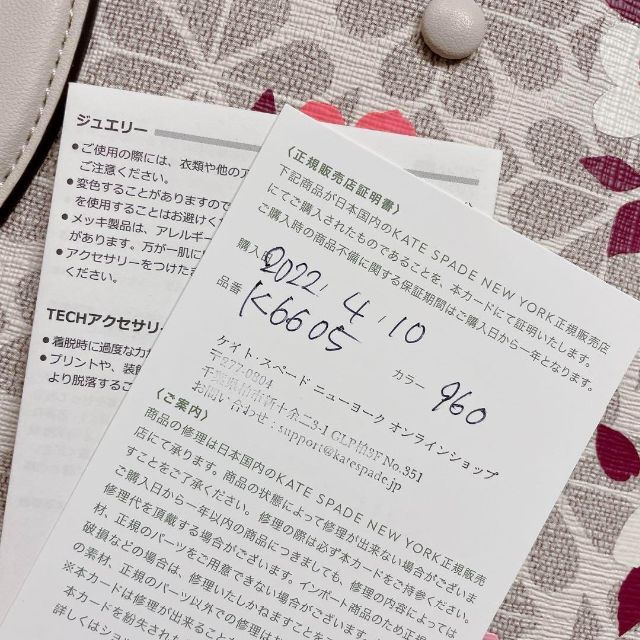 ジュエリー
●ご使用の際には、衣類や他のア
ご注意ください。
●変色することがありますので
を使用することはお避けく
●メッキ製品は、アレルギー
があります。万が一肌に
●アクセサリーをつけたま
ください。
TECHアクセサリー
●着脱時に過度な力が
●プリントや、装飾
より脱落するこ
〈正規販売店証明書〉
下記商品が日本国内のKATE SPADE NEW YORK正規販売店
にてご購入されたものであることを、本カードにて証明いたします。
ご購入時の商品不備に関する保証期間はご購入日から一年となります。
購入日 2022. 4. 10
品番 K6605 カラー 960
ケイト・スペード ニューヨーク オンラインショップ
〒277-0804
千葉県柏市新十余二3-1 GLP柏3F No.351
お問い合わせ : support@katespade.jp
〈ご案内〉
商品の修理は日本国内のKATE SPADE NEW YORK正規販売
店にて承ります。商品の状態によって修理が出来ない場合がございま
すことをご了承ください。修理の際は必ず本カードをご持参ください。
ご購入日から一年以内の商品につきましても、修理の内容によっては
修理代を頂戴する場合がございます。インポート商品のため正規
材、正規のパーツをご用意できない場合がございます。
破損などの場合は、修理いたしかねますことを
の素材、正規のパーツ以外での修理は
※本カードは修理が出来ること
本カードを紛失された
詳しくはショ